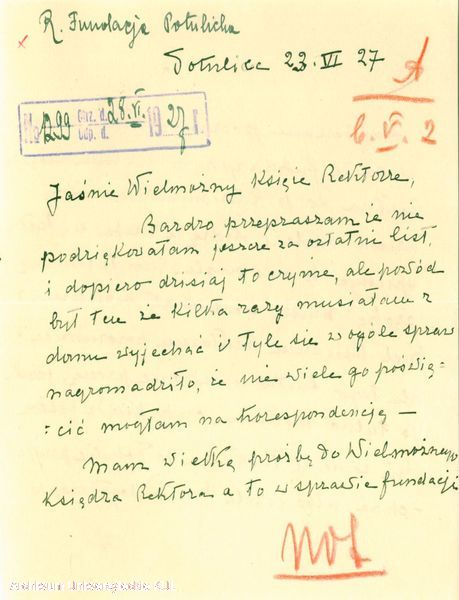 R. Fundacja Potulicka
Potulice 23. VI 27
A
b. V. 2
No 1299 Otrz. d. 28. VI. 1927 r.
Odp. d.
Jaśnie Wielmożny Księże Rektorze,
Bardzo przepraszam że nie
podziękowałam jeszcze za ostatni list,
i dopiero dzisiaj to czynię, ale powód
był ten że kilka razy musiałam z
domu wyjechać i tyle się w ogóle spraw
nagromadziło, że nie wiele go poświę-
=cić mogłam na korespondencję —
Mam wielką prośbę do Wielmożnego
Księdza Rektora a to w sprawie fundacji
Archiwum Uniwersyteckie K.U.L.